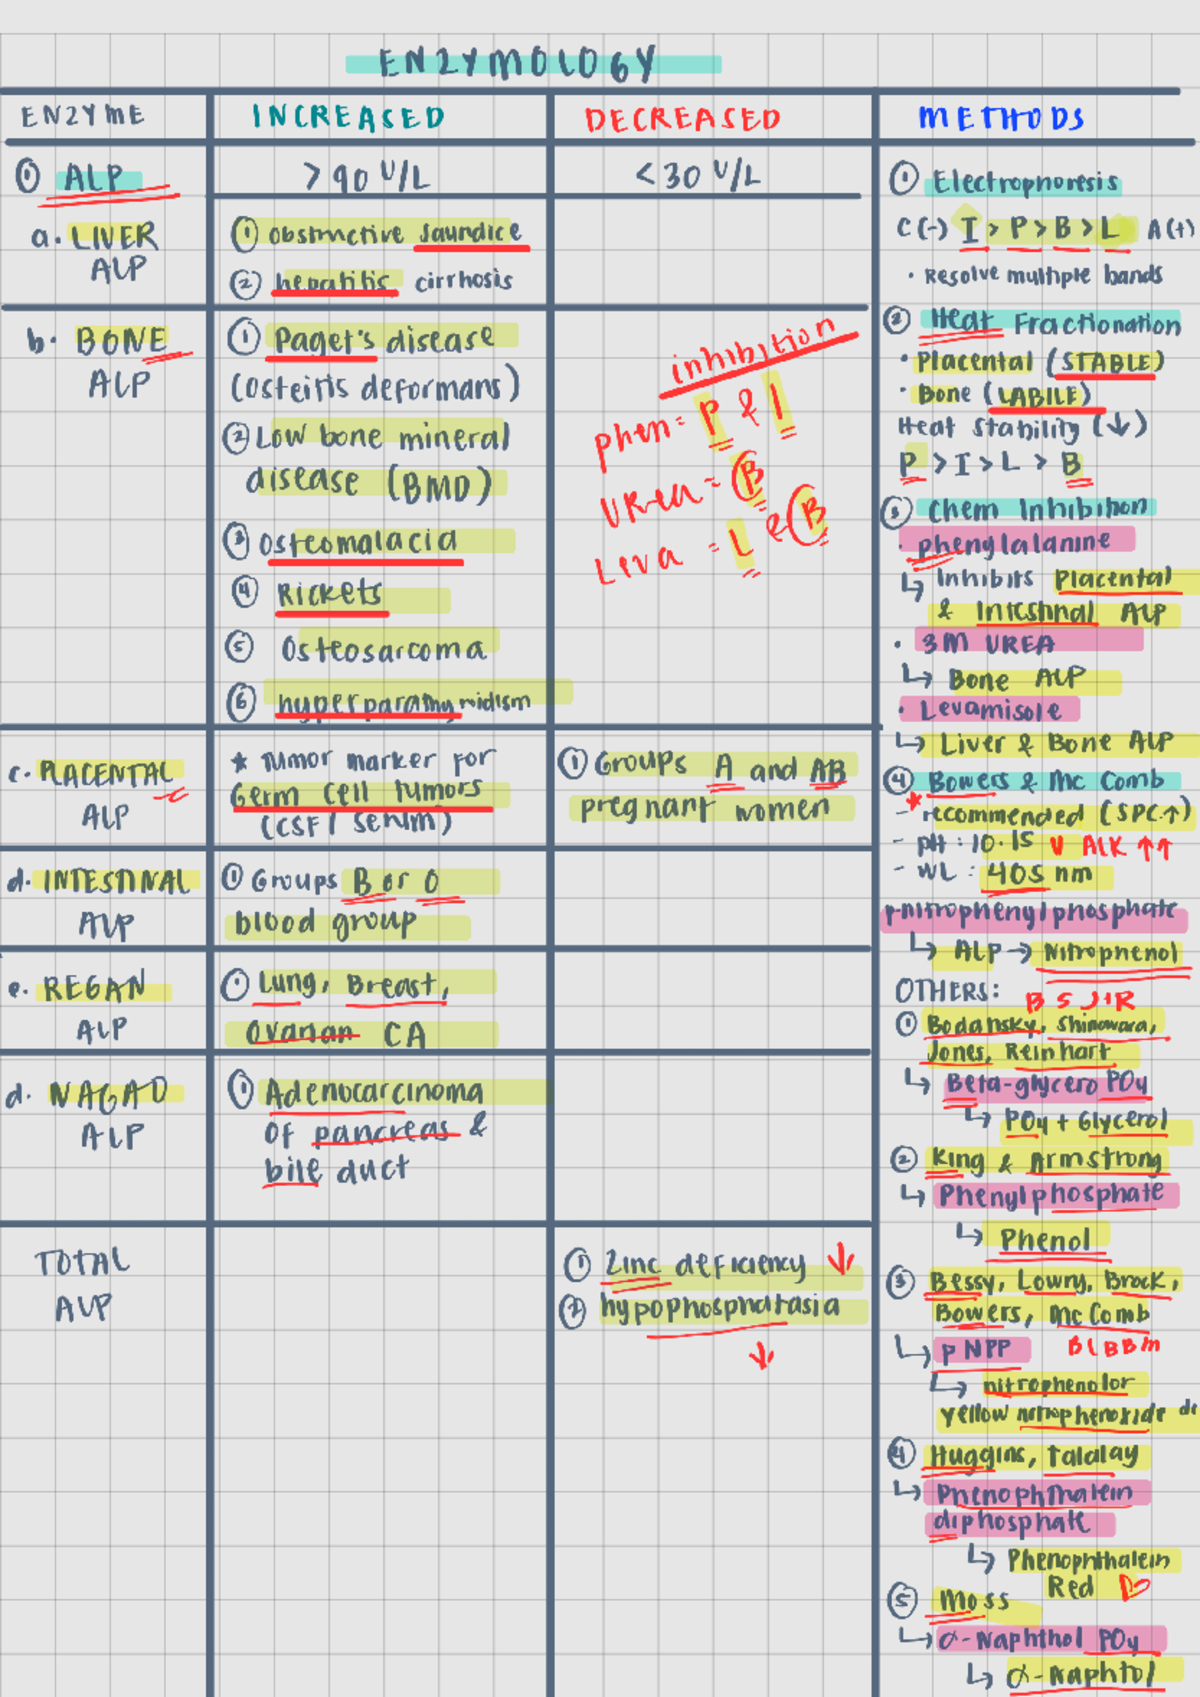 ENZYMOLOGY
ENZYME INCREASED DECREASED METHODS
① ALP > 90 U/L < 30 U/L
a. LIVER ALP
① obstructive jaundice
② hepatitis cirrhosis
b. BONE ALP
① Paget's disease
(osteitis deformans)
② Low bone mineral
disease (BMD)
③ Osteomalacia
④ Rickets
⑤ Osteosarcoma
⑥ hyperparathyroidism
inhibition
phen = P & I
Urea = B
Leva = L & B
c. PLACENTAL ALP
★ Tumor marker for
Germ cell tumors
(CSF / serum)
① Groups A and AB
pregnant women
d. INTESTINAL ALP
① Groups B or O
blood group
e. REGAN ALP
① Lung, Breast,
Ovarian CA
d. NAGAO ALP
① Adenocarcinoma
of pancreas &
bile duct
TOTAL ALP
① Zinc deficiency ↓
② hypophosphatasia
↓
① Electrophoresis
C(-) I > P > B > L A(+)
• Resolve multiple bands
② Heat Fractionation
• Placental (STABLE)
• Bone (LABILE)
Heat Stability (↓)
P > I > L > B
③ Chem Inhibition
• phenylalanine
↳ Inhibits Placental
& Intestinal ALP
• 3M UREA
↳ Bone ALP
• Levamisole
↳ Liver & Bone ALP
④ Bowers & Mc Comb
★
- recommended (SPC↑)
- pH : 10.15 V ALK ↑↑
- WL : 405 nm
p-nitrophenylphosphate
↳ ALP → Nitrophenol
OTHERS: B S J R
① Bodansky, Shinowara,
Jones, Reinhart
↳ Beta-glycero PO4
↳ PO4 + Glycerol
② King & Armstrong
↳ Phenylphosphate
↳ Phenol
③ Bessy, Lowry, Brock,
Bowers, Mc Comb
↳ pNPP BLBBm
↳ nitrophenol or
yellow nitrophenoxide
④ Huggins, Talalay
↳ Phenophthalein
diphosphate
↳ Phenophthalein
Red
⑤ Moss
↳ α-Naphthol PO4
↳ α-Naphtol